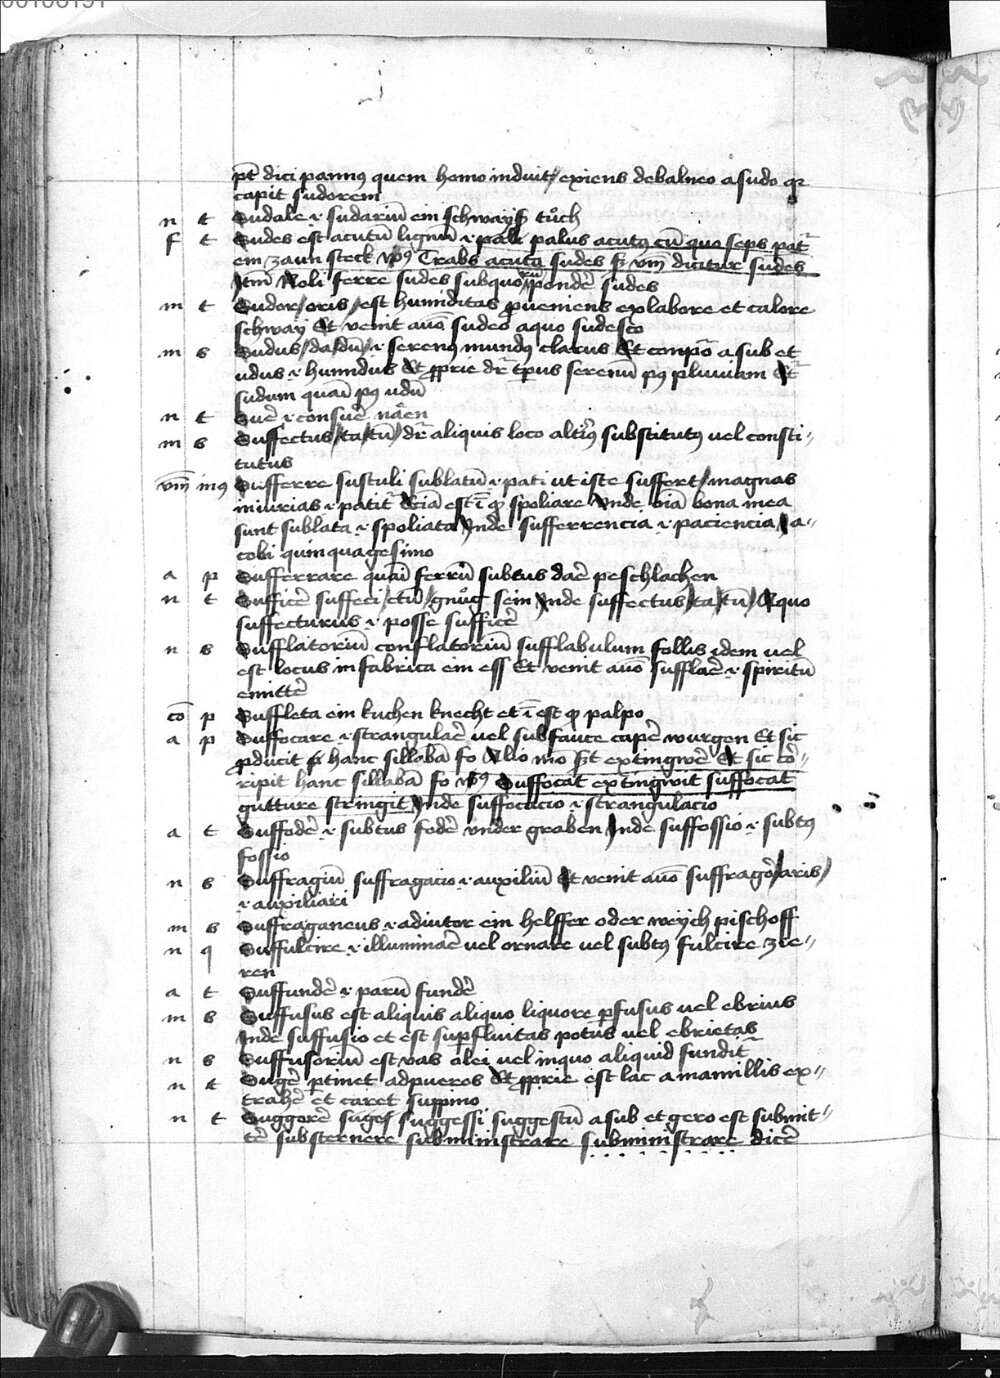 pt̄ dici pannꝰ quem homo induit / exiens debalneo asudo qꝛ
capit sudorem
n t Sudale ẜ sudariū ein schwayß tůch
f t Sudes est acutū lignū ẜ palꝰ palus acutꝰ cū quo seps pat̄
ein zaun steck vꝰsꝰ Trabs acuta sudes sꝫ vnū dicitur sudes
Itm̄ Noli ferre sudes subquo ponderē sudes
m t Sudor / oris / est humiditas ꝓueniens exlabore et calore
schway Et venit auō sudeo aquo sudesco
m s Sudus / da / dū / ẜ serenꝰ mundꝰ clarus Et conpōr asub et
udus ẜ humidus Et ꝓprie dr̄ tꝑus serenū pꝰ pluuiam Et̄
sudum quasi pꝰ udū
n t Suē ẜ consuē näen
m s Suffectus / ta / tū / dr̄ aliquis loco altꝰius substitutꝰ uel consti〃
tutus
vnī inꝰ Sufferre sustuli sublatū ẜ pati ut iste suffert / magnas
iniurias ẜ patit̄ Eciā est ī qꝫ spoliare Vnde oīa bona mea
sunt sublata ẜ spoliata Inde sufferrencia ẜ paciencia Ja〃
cobi quinquagesimo
a p Sufferrare quasi ferrū subtus darē peschlachen
n t Sufficē suffeci / ctū / gnůg sein Inde suffectus / ta / tū / Aquo
suffecturus ẜ posse sufficē
n s Sufflatoriū conflatoriū sufflabulum follis idem uel
est locus infabrica ein ess Et venit auō sufflaē ẜ spiritū
emittē
cō p Suffleta ein kuchen knecht et ī est qꝫ palpo
a p Suffocare ẜ strangulaē uel subfauce capē wurgen Et sic
ꝓducit hanc sillabā fo Alio mō s̄t extingwē Et sic cō〃
ripit hanc sillabā fo vꝰsꝰ Suffocat extingwit suffocat
gutture stringit Inde suffocacio ẜ strangulacio
a t Suffodē ẜ subtus fodē vnder graben Inde suffossio ẜ subtꝰ
fossio
n s Suffragiū suffragacio ẜ auxiliū Et venit auō suffragor / aris /
ẜ auxiliari
m s Suffraganeus ẜ adiutor ein helffer oder weych pischoff
n q Suffulcire ẜ illuminaē uel ornare uel subtꝰ fulcire zie〃
ren
a t Suffundē ẜ parū fundē
m s Suffusus est aliquis aliquo liquore ꝑfusus uel ebrius
Inde suffusio et est suꝑfluitas potus uel ebrietas
n s Suffusoriū est vas olei uel inquo aliquid fundit̄
n t Sugē ꝑtinet adpueros Et ꝓprie est lac a mamillis ex〃
trahē et caret suppino
n t Suggerē suges suggessi suggestū asub et gero est submit〃
tē substernere subministrare subministrare dicē